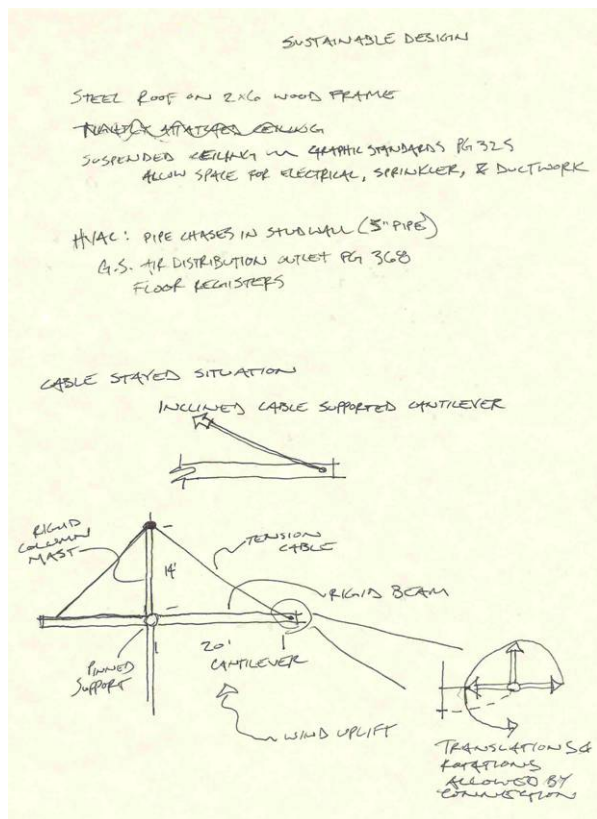 SUSTAINABLE DESIGN
STEEL ROOF ON 2×6 WOOD FRAME
CEILING
SUSPENDED CEILING GRAPHIC STANDARDS PG 325
ALLOW SPACE FOR ELECTRICAL, SPRINKLER, & DUCTWORK
HVAC: PIPE CHASES IN STUD WALL (5" PIPE)
G.S. AIR DISTRIBUTION OUTLET PG 368
FLOOR REGISTERS
CABLE STAYED SITUATION
INCLINED CABLE SUPPORTED CANTILEVER
RIGID
COLUMN
MAST
TENSION
CABLE
14'
RIGID BEAM
PINNED
SUPPORT
20'
CANTILEVER
WIND UPLIFT
TRANSLATIONS &
ROTATIONS
ALLOWED BY
CONNECTION